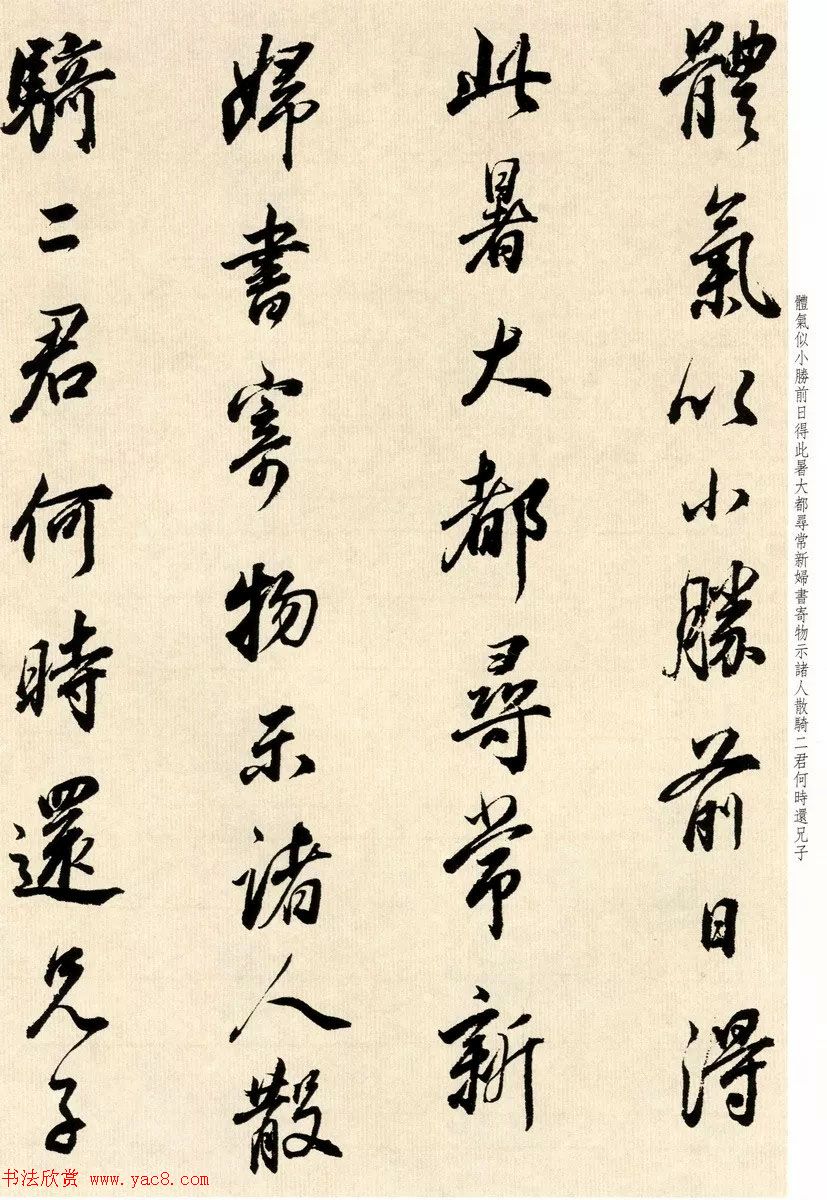 體氣似小勝前日得
此暑大都尋常新
婦書寄物示諸人散
騎二君何時還兄子
體氣似小勝前日得此暑大都尋常新婦書寄物示諸人散騎二君何時還兄子
书法欣赏 www.yac8.com